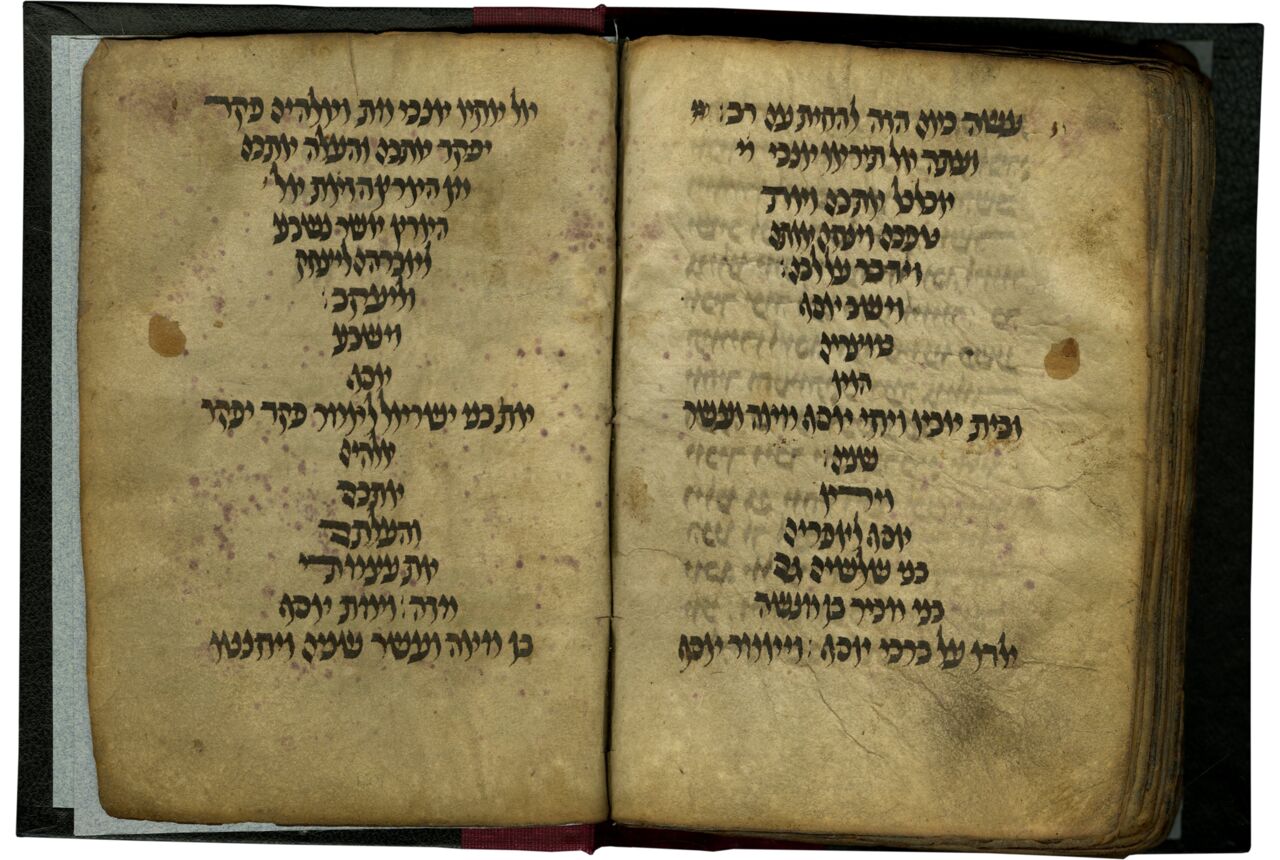 עשה כיום הזה להחית עם רב׃
ועתה אל תיראו אנכי
אכלכל אתכם ואת
טפכם וינחם אותם
וידבר על לבם׃
וישב יוסף
במצרים
הוא
ובית אביו ויחי יוסף מאה ועשר
שנים׃
וירא
יוסף לאפרים
בני שלשים גם
בני מכיר בן מנשה
ילדו על ברכי יוסף׃ ויאמר יוסף
אל אחיו אנכי מת ואלהים פקד
יפקד אתכם והעלה אתכם
מן הארץ הזאת אל
הארץ אשר נשבע
לאברהם ליצחק
וליעקב׃
וישבע
יוסף
את בני ישראל לאמר פקד יפקד
אלהים
אתכם
והעלתם
את עצמותי
מזה׃ וימת יוסף
בן מאה ועשר שנים ויחנטו